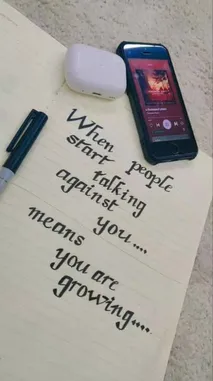 When people
start talking
against you....
means
you are
growing....